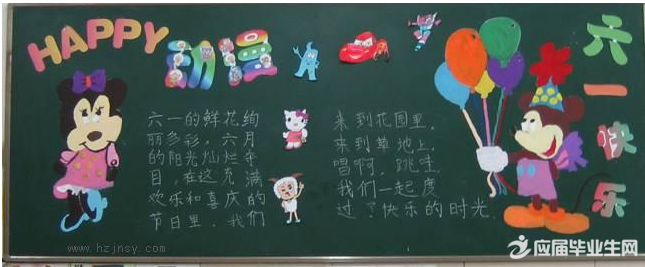 HAPPY
动漫
六一的鲜花绚
丽多彩，六月
的阳光灿烂夺
目，在这充满
欢乐和喜庆的
节日里，我们
来到花园里，
来到草地上，
唱啊，跳哇
我们一起度
过了快乐的时光.
六一快乐
www.hzjnsy.com
应届毕业生网